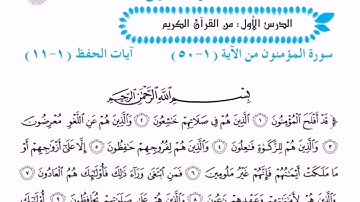 الدرس الأول : من القرآن الكريم
سورة المؤمنون من الآية (١-٥٠) آيات الحفظ (١-١١)
بِسْمِ اللَّهِ الرَّحْمَٰنِ الرَّحِيمِ
قَدْ أَفْلَحَ الْمُؤْمِنُونَ ١ الَّذِينَ هُمْ فِي صَلَاتِهِمْ خَاشِعُونَ ٢ وَالَّذِينَ هُمْ عَنِ اللَّغْوِ مُعْرِضُونَ
٣ وَالَّذِينَ هُمْ لِلزَّكَوٰةِ فَاعِلُونَ ٤ وَالَّذِينَ هُمْ لِفُرُوجِهِمْ حَافِظُونَ ٥ إِلَّا عَلَىٰ أَزْوَاجِهِمْ أَوْ
مَا مَلَكَتْ أَيْمَانُهُمْ فَإِنَّهُمْ غَيْرُ مَلُومِينَ ٦ فَمَنِ ابْتَغَىٰ وَرَاءَ ذَٰلِكَ فَأُولَٰئِكَ هُمُ الْعَادُونَ ٧
وَالَّذِينَ هُمْ لِأَمَانَاتِهِمْ وَعَهْدِهِمْ رَاعُونَ ٨ وَالَّذِينَ هُمْ عَلَىٰ صَلَوَاتِهِمْ يُحَافِظُونَ ٩ أُولَٰئِكَ